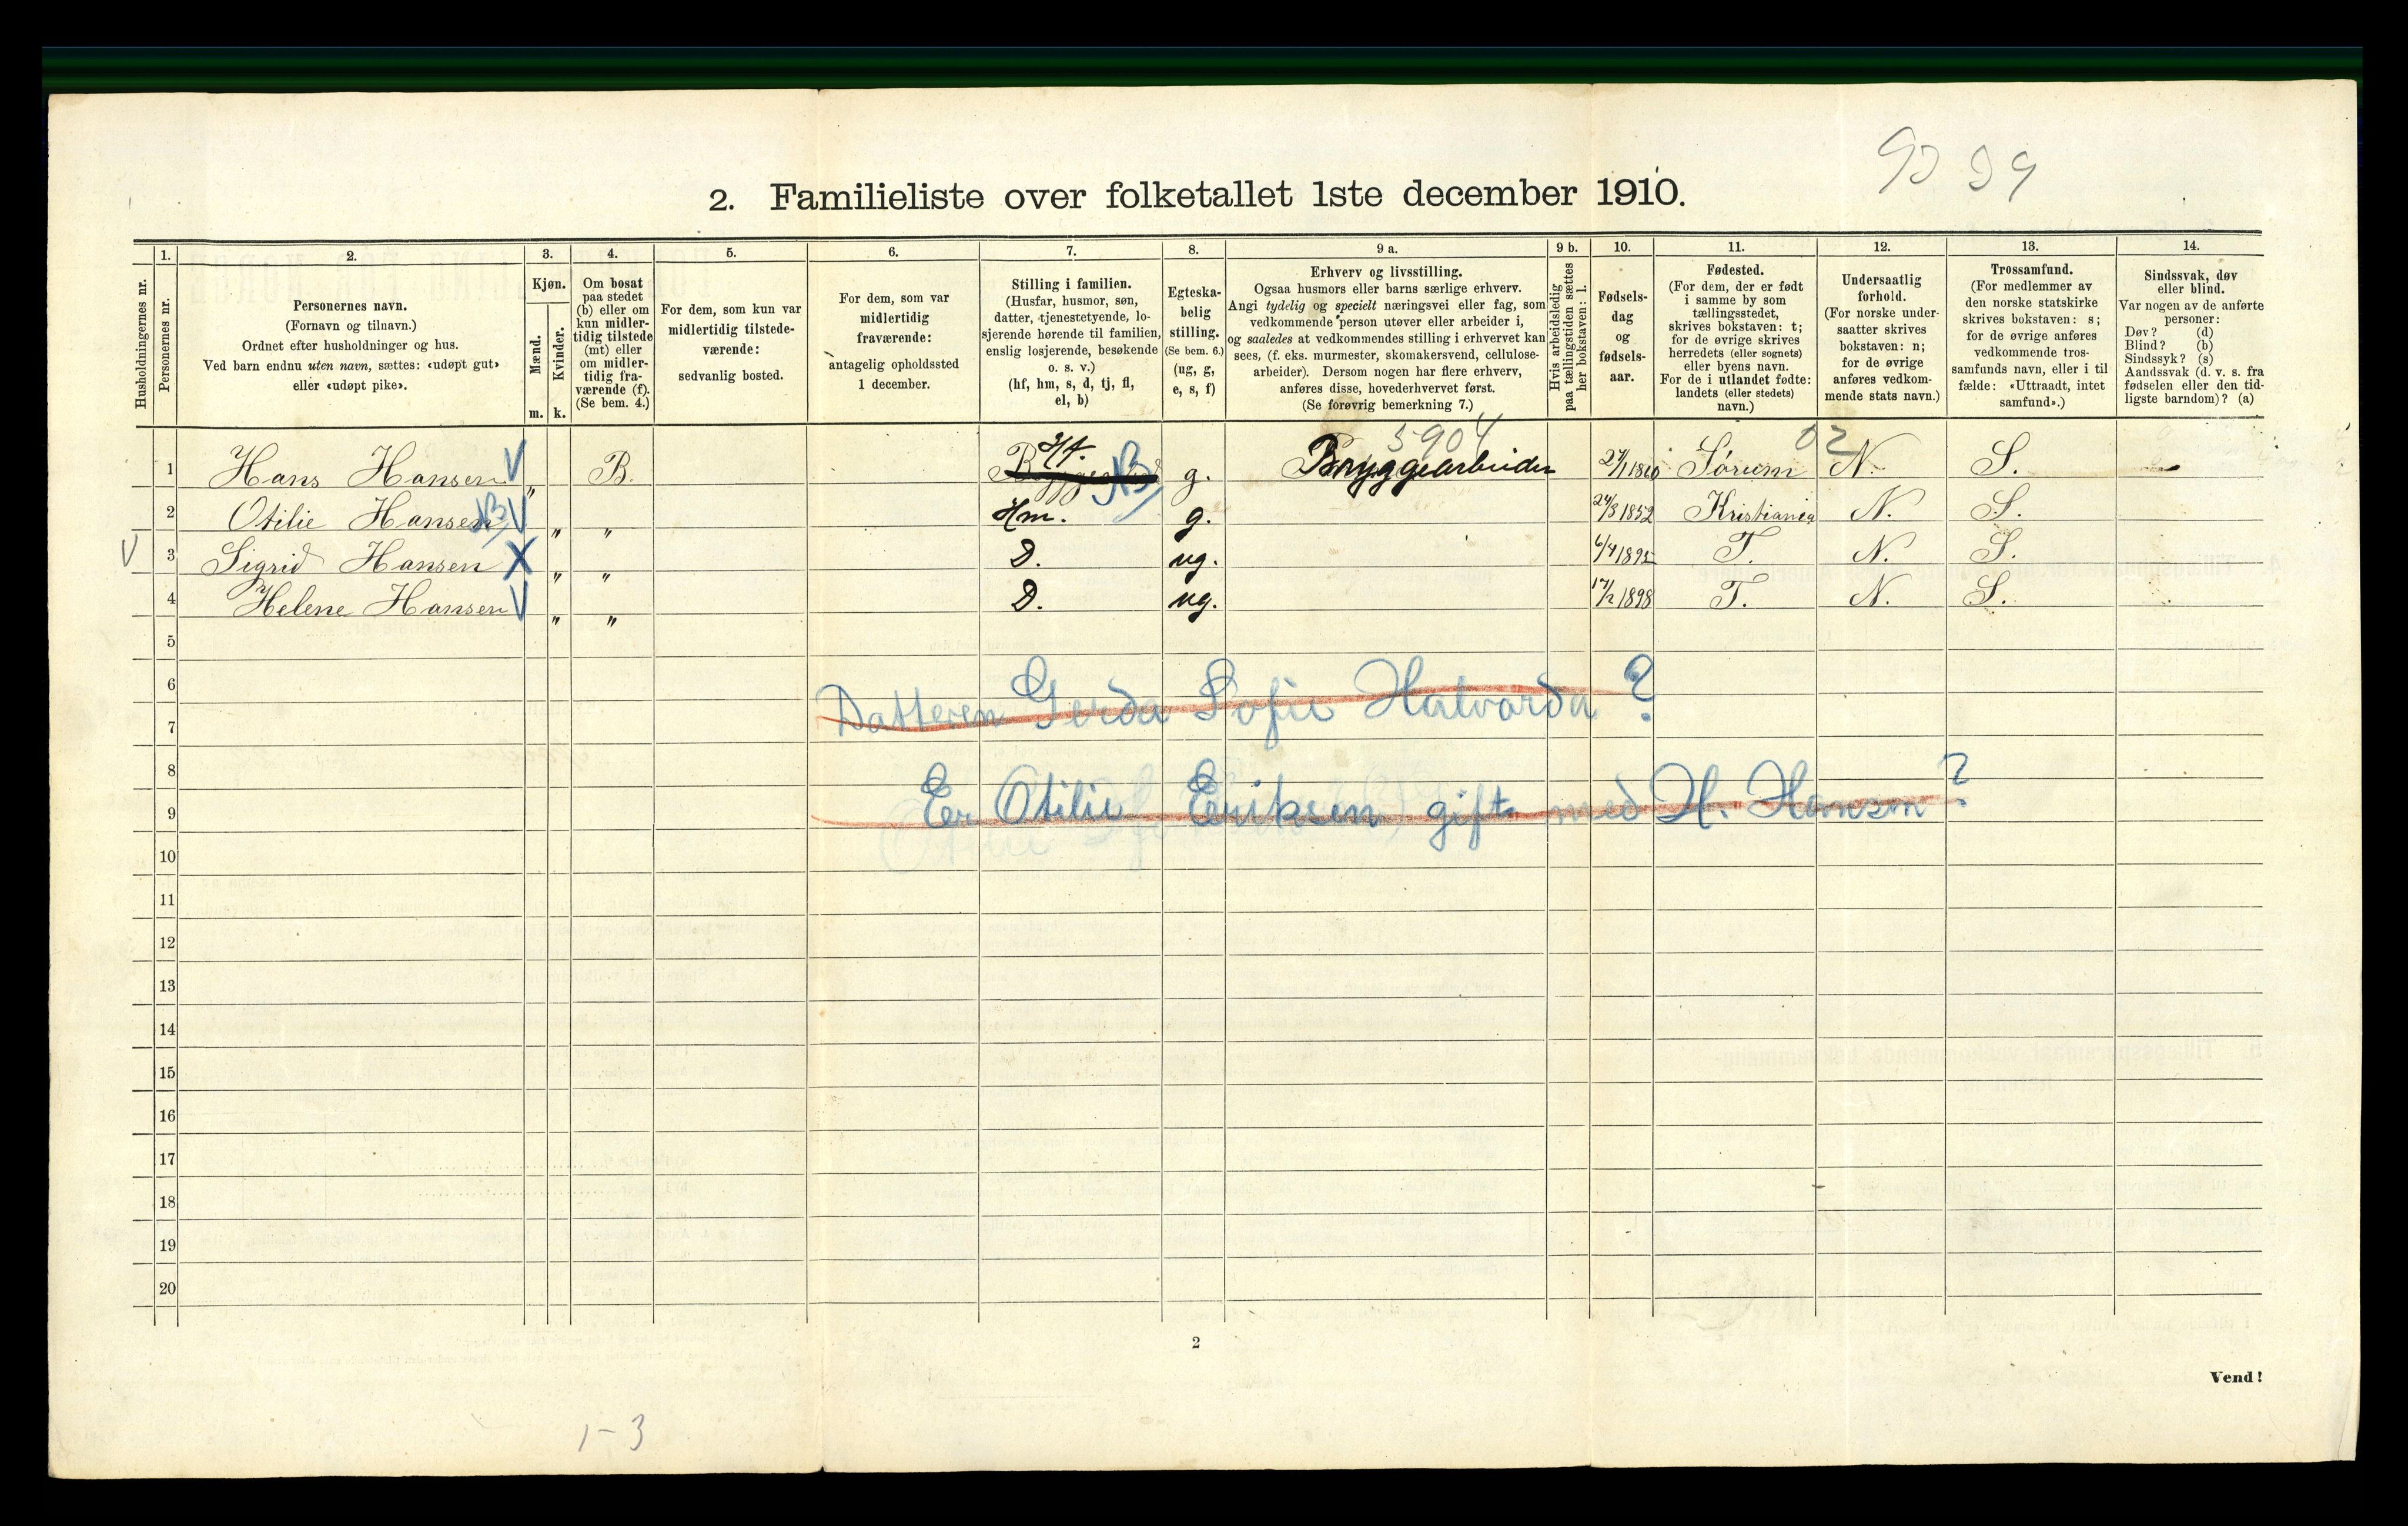 9
2. Familieliste over folketallet 1ste december 1910.
Husholdningernes nr.
1.
Personernes nr.
2.
Personernes navn.
(Fornavn og tilnavn.)
Ordnet efter husholdninger og hus.
Ved barn endnu uten navn, sættes: «udøpt gut»
eller «udøpt pike».
3.
Kjøn.
Mænd.
Kvinder.
m. k.
4.
Om bosat
paa stedet
(b) eller om
kun midler-
tidig tilstede
(mt) eller
om midler-
tidig fra-
værende (f).
(Se bem. 4.)
5.
For dem, som kun var
midlertidig tilstede-
værende:
sedvanlig bosted.
6.
For dem, som var
midlertidig
fraværende:
antagelig opholdssted
1 december.
7.
Stilling i familien.
(Husfar, husmor, søn,
datter, tjenestetyende, lo-
sjerende hørende til familien,
enslig losjerende, besøkende
o. s. v.)
(hf, hm, s, d, tj, fl,
el, b)
8.
Egteska-
belig
stilling.
(Se bem. 6.)
(ug, g,
e, s, f)
9 a.
Erhverv og livsstilling.
Ogsaa husmors eller barns særlige erhverv.
Angi tydelig og specielt næringsvei eller fag, som
vedkommende person utøver eller arbeider i,
og saaledes at vedkommendes stilling i erhvervet kan
sees, (f. eks. murmester, skomakersvend, cellulose-
arbeider). Dersom nogen har flere erhverv,
anføres disse, hovederhvervet først.
(Se forøvrig bemerkning 7.)
9 b.
Hvis arbeidsledig
paa tællingstiden sættes
her bokstaven: l.
10.
Fødsels-
dag
og
fødsels-
aar.
11.
Fødested.
(For dem, der er født
i samme by som
tællingsstedet,
skrives bokstaven: t;
for de øvrige skrives
herredets (eller sognets)
eller byens navn.
For de i utlandet fødte:
landets (eller stedets)
navn.)
12.
Undersaatlig
forhold.
(For norske under-
saatter skrives
bokstaven: n;
for de øvrige
anføres vedkom-
mende stats navn.)
13.
Trossamfund.
(For medlemmer av
den norske statskirke
skrives bokstaven: s;
for de øvrige anføres
vedkommende tros-
samfunds navn, eller i til
fælde: «Uttraadt, intet
samfund».)
14.
Sindssvak, døv
eller blind.
Var nogen av de anførte
personer:
Døv? (d)
Blind? (b)
Sindssyk? (s)
Aandssvak (d. v. s. fra
fødselen eller den tid-
ligste barndom)? (a)
5904 02
1 Hans Hansen V " B. Hf. NB g. Bryggearbeider 27/1 1860 Sørum N. S. -
2 Otilie Hansen NB V " " Hm. g. 24/8 1852 Kristiania N. S.
V 3 Sigrid Hansen X " " D. ug. 6/4 1895 T. N. S.
4 Helene Hansen V " " D. ug. 17/2 1898 T. N. S.
5
6
Datteren Gerda Sofie Halvarda ?
7
8
Er Otilie Eriksen gift med H. Hansen ?
9
10
11
12
13
14
15
16
17
18
19
20
2
Vend!
1-3